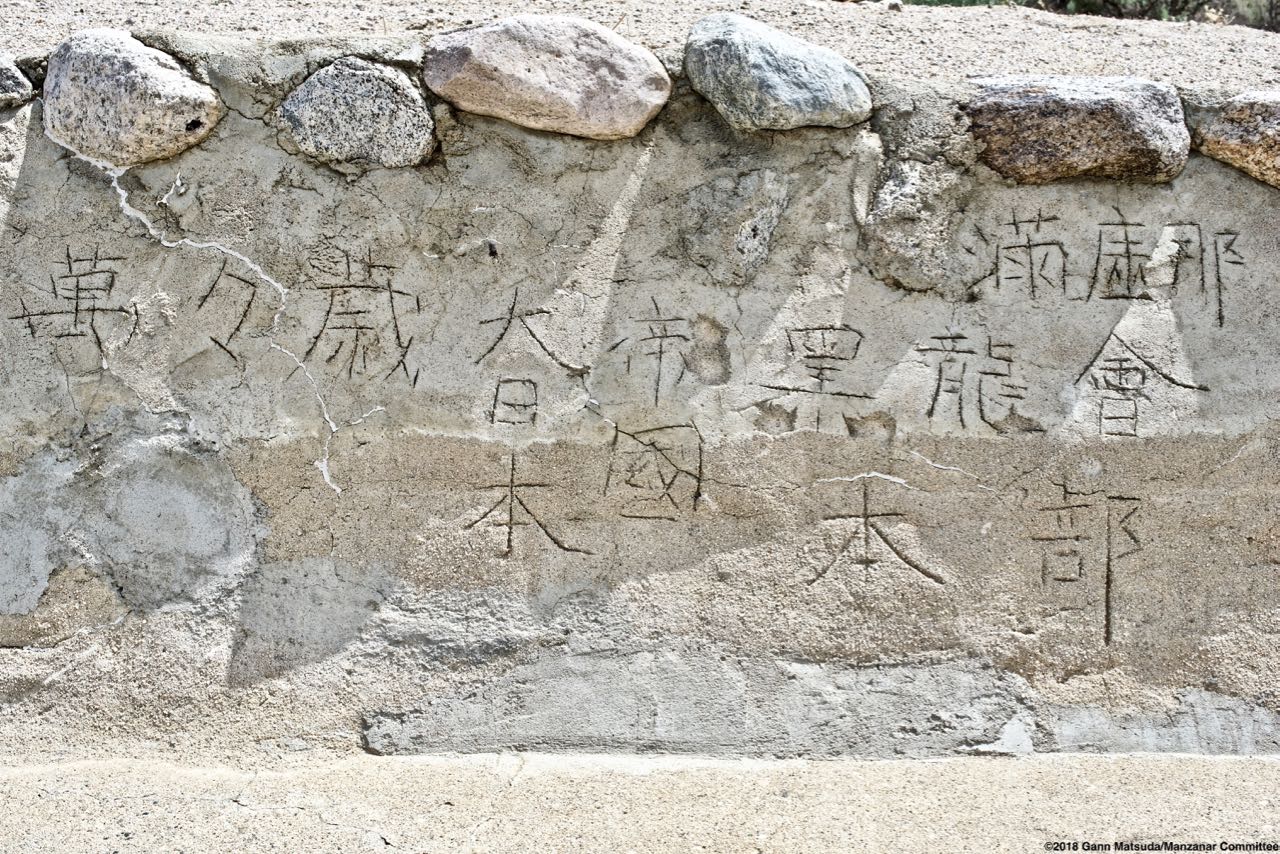 満座那
黒龍會
本部
大日本
帝國
萬々歳
©2018 Gann Matsuda/Manzanar Committee